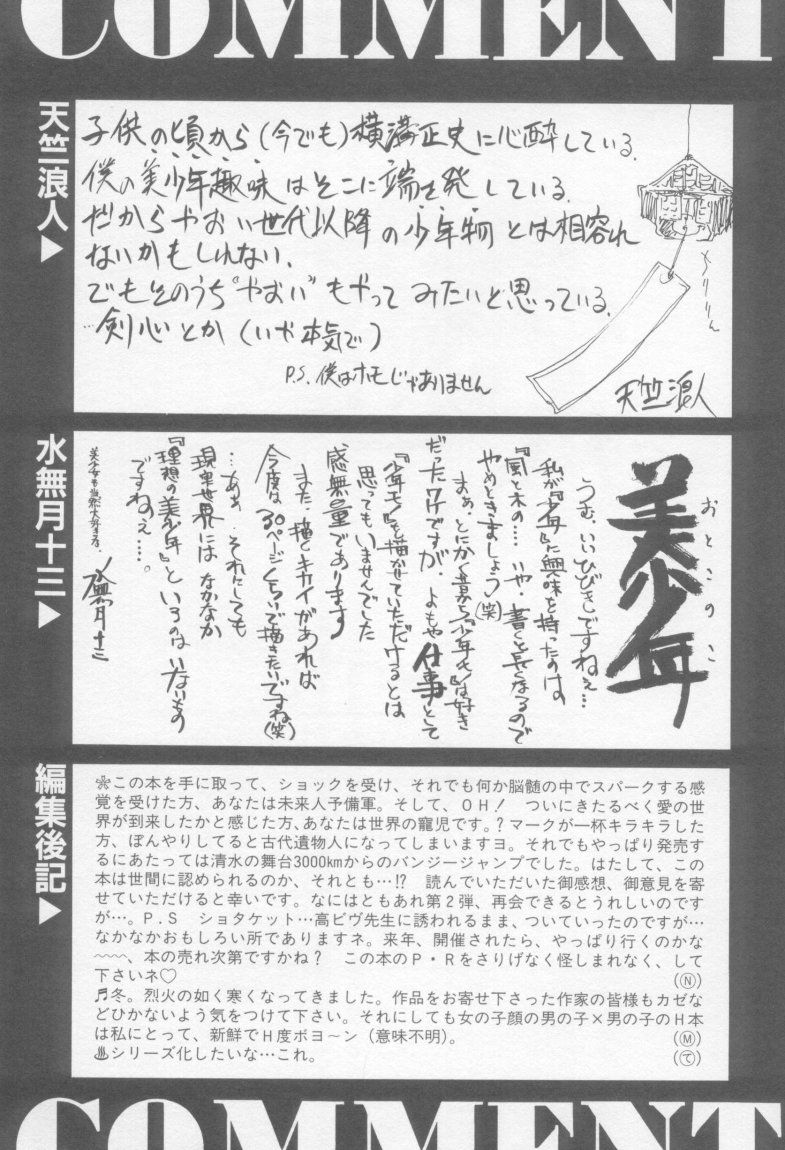 COMMENT
天竺浪人▶
子供の頃から(今でも)横溝正史に心酔している。
僕の美少年趣味はそこに端を発している。
だからやおい世代以降の少年物とは相容れ
ないかもしれない.
でもそのうち“やおい”もやってみたいと思っている。
…剣心とか(いや本気で)
P.S. 僕はホモじゃありません
ちりりりん
天竺浪人
水無月十三▶
美少年
おとこのこ
うむ、いいひびきですねぇ…
私が『少年』に興味を持ったのは
『風と木の…いや、書くと長くなるので
やめときましょう(笑)
まぁ、とにかく昔から『少年モノ』は好き
だったワケですが、よもや仕事として
『少年モノ』を描かせていただけるとは
思ってもいませんでした
感無量であります
また、描くキカイがあれば
今度は30ページくらいで描きたいですね(笑)
…ああ、それにしても
現実世界にはなかなか
『理想の美少年』というのはいないもの
ですねぇ…。
美少女も当然大好きさ、
水無月十三
編集後記▶
❊この本を手に取って、ショックを受け、それでも何か脳髄の中でスパークする感
覚を受けた方、あなたは未来人予備軍。そして、OH! ついにきたるべく愛の世
界が到来したかと感じた方、あなたは世界の寵児です。?マークが一杯キラキラした
方、ぼんやりしてると古代遺物人になってしまいますヨ。それでもやっぱり発売す
るにあたっては清水の舞台3000kmからのバンジージャンプでした。はたして、この
本は世間に認められるのか、それとも…!? 読んでいただいた御感想、御意見を寄
せていただけると幸いです。なにはともあれ第2弾、再会できるとうれしいのです
が…。P.S ショタケット…高ビヴ先生に誘われるまま、ついていったのですが…
なかなかおもしろい所でありますネ。来年、開催されたら、やっぱり行くのかな
〜〜、本の売れ次第ですかね? この本のP・Rをさりげなく怪しまれなく、して
下さいネ♡ Ⓝ
♬冬。烈火の如く寒くなってきました。作品をお寄せ下さった作家の皆様もカゼな
どひかないよう気をつけて下さい。それにしても女の子顔の男の子×男の子のH本
は私にとって、新鮮でH度ボヨ〜ン(意味不明)。 Ⓜ
♨シリーズ化したいな…これ。 (て)
COMMENT